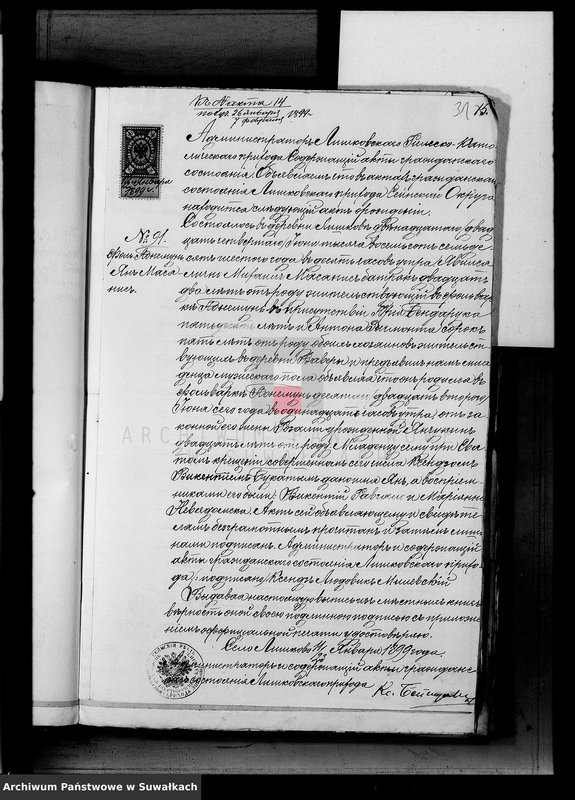 Къ Акта 14
1899
31 15.
Администраторъ Лишковскаго Римско-Като-
лическаго прихода Содержащій акты гражданскаго
состоянія Объявляетъ что въ актахъ гражданскаго
состоянія Лишковскаго прихода Сейнскаго Округа
находится слѣдующій актъ о рожденіи.
№ 91.
Янъ Маса
нис.
Состоялось въ деревни Лишковѣ двѣнадцатаго (двад
цать четвертаго) Іюня тысяча восемьсотъ семьде-
сятъ шестого года въ десять часовъ утра. Явился
лично Михаилъ Масанисъ батракъ двадцать
два лѣтъ отъ роду жительствующій въ фольвар
кѣ Понемунь въ присутствіи Бендарука
пятьдесятъ лѣтъ и Антона сорокъ
пять лѣтъ отъ роду обоихъ хозяевъ жительст
вующихъ въ деревни и предъявилъ намъ мла
денца мужескаго пола объявляя что онъ родился въ
фольваркѣ Понемунь десятаго (двадцать второго)
Іюня сего года въ одинадцать часовъ утра, отъ за-
конной его жены Розаліи урожденной
двадцать лѣтъ отъ роду. Младенцу сему при Свя
томъ крещеніи совершенномъ сего числа Ксендзомъ
Викентіемъ дано имя Янъ, а воспріем-
никами его были: Викентій и Маріанна
Актъ сей объявляющему и свидѣте
лямъ безграмотнымъ прочитанъ и Нами только
нами подписанъ. Администраторъ и содержащій
акты гражданскаго состоянія Лишковскаго прихо-
да (: подписано) Ксендзъ Людовикъ Милевскій
Выдавая настоящую выпись изъ мѣстныхъ книгъ
вѣрность оной своею подлинною подписью съ приложе-
ніемъ оффиціальной печати удостовѣряю.
Село Лишково 11/23 Января 1899 года.
Администраторъ и содержащій акты гражданс-
каго состоянія Лишковскаго прихода Кс.
ARCH
Archiwum Państwowe w Suwałkach